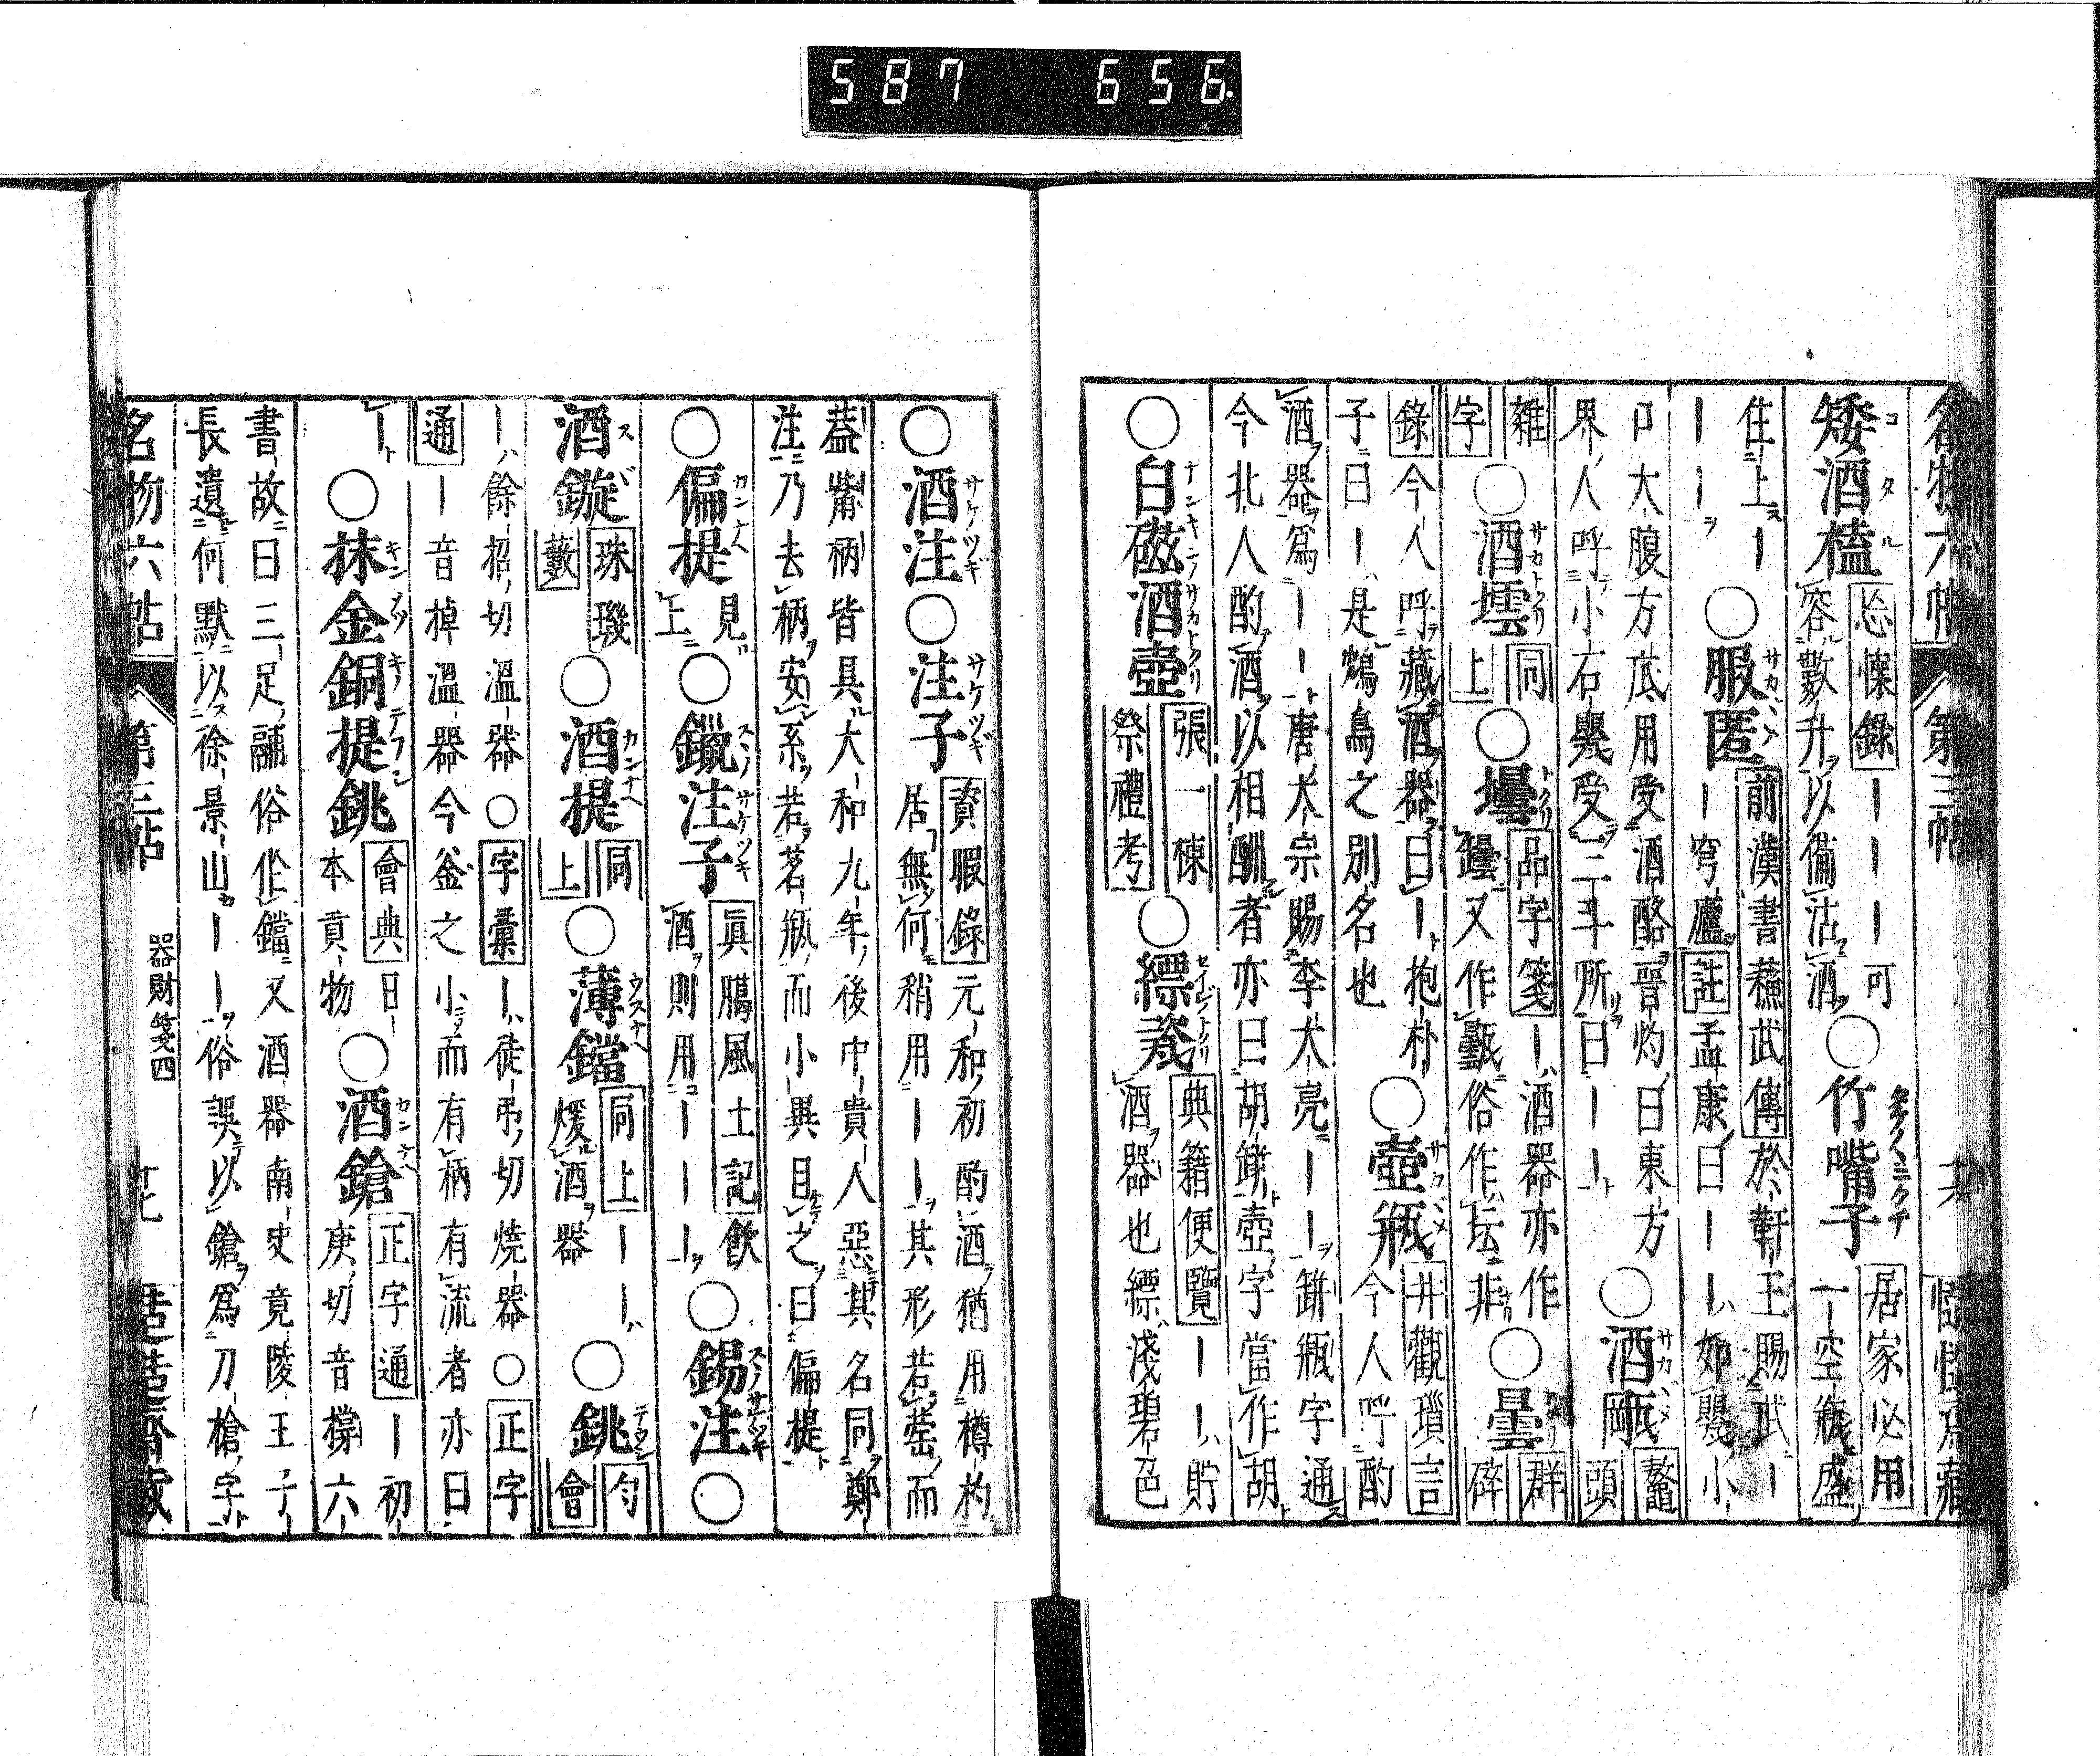 名物六帖 第三帖 十六
矮酒榼 コタル 懷錄｜｜｜可
容數升以備沽酒 ○竹嘴子 居家必用
一空瓶盛
住上｜
｜｜ ○服匿 前漢書蘇武傳於軒王賜武｜
｜穹廬註孟康曰｜｜如甖小
口大腹方底用受酒酪晉灼曰東方
界人呼小石甖受二斗所曰｜｜ ○酒㼚 サカガメ 鼇頭
雜字 ○酒壜 同上 ○壜 トクリ 品字箋｜酒器亦作
罎又作甔俗作坛非 ○曇 群碎
錄今人呼藏酒器曰｜抱朴
子曰｜是鴆鳥之別名也 ○壺瓶 サカガメ 井觀瑣言
今人呼酌
酒器爲｜｜唐太宗賜李大亮｜｜缾瓶字通
今北人酌酒以相酬者亦曰胡缾壺字當作胡
○白磁酒壺 ナンキンノサカトクリ 張一棟祭禮考 ○縹瓷 典籍便覽｜｜貯
酒器也縹淺碧色
○酒注 サケツギ ○注子 サケツギ 資暇錄元和初酌酒猶用樽杓
居無何稍用｜｜其形若罃而
蓋觜柄皆具大和九年後中貴人惡其名同鄭
注乃去柄安系若茗瓶而小異目之曰偏提
○偏提 カンナベ 見上 ○鑞注子 スヾノサケツギ 眞臘風土記飲
酒則用｜｜｜ ○錫注 スヾノサケツギ ○
酒鏇 珠璣藪 ○酒提 カンナベ 同上 ○薄鐺 ウスナベ 同上｜｜
煖酒器 ○銚 勻會
｜餘招切溫器○字彙｜徒弔切燒器○正字
通｜音掉溫器今釜之小而有柄有流者亦曰
｜ ○抹金銅提銚 會典曰
本貢物 ○酒鎗 カンナベ 正字通｜初
庚切音撐六
書故曰三足鬴俗作鐺又酒器南史竟陵王子
長遺何默以徐景山｜｜俗誤以鎗爲刀槍字
名物六帖 第三帖 器財箋四 十七